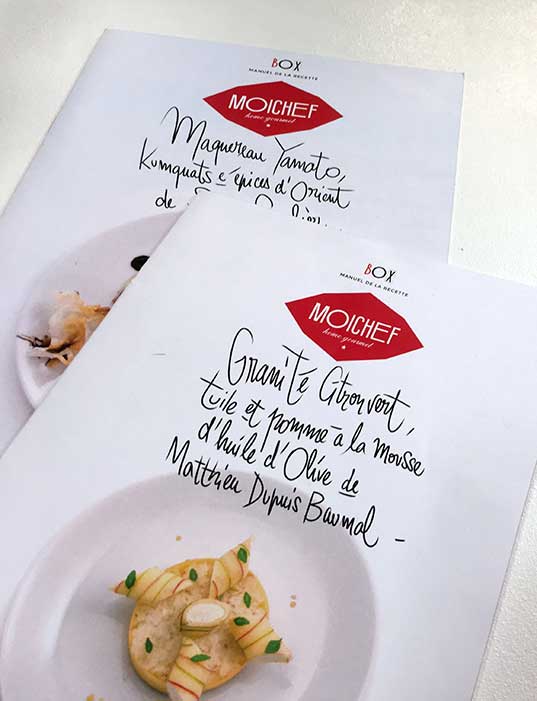 BOX
MANUEL DE LA RECETTE
MOICHEF
home gourmet
Maquereau Yamato,
Kumquats & épices d'Orient
de
BOX
MANUEL DE LA RECETTE
MOICHEF
home gourmet
Granité Citronvert,
tuile et pomme à la mousse
d'huile d'Olive de
Matthieu Dupuis Baumal -